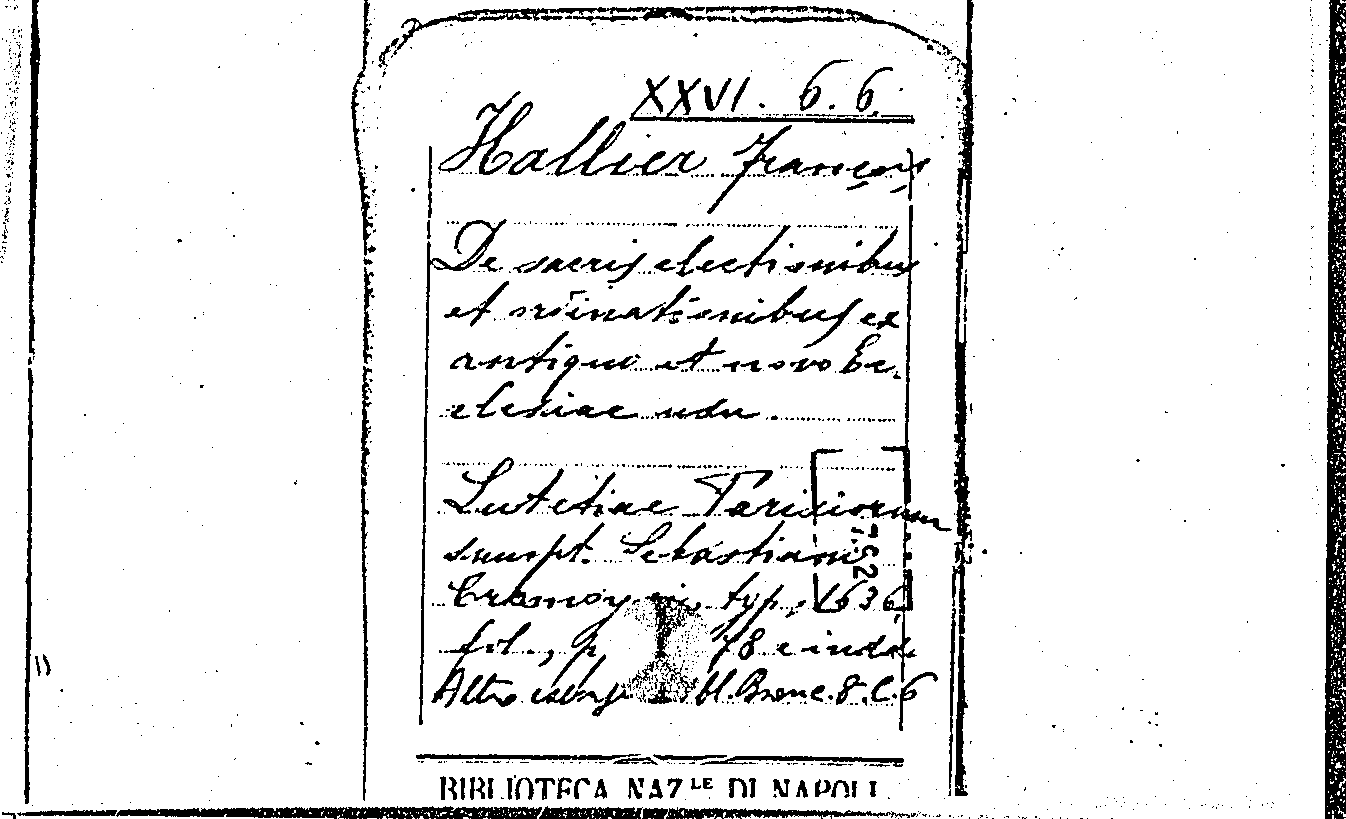 XXVI. 6. 6.
Hallier François
De sacris electionibus
et ordinationibus ex
antiquo et novo Ec.
clesiae usu.
Lutetiae Parisiorum
sumpt. Sebastiani
Cramoy typ., 1636
fol., p. 78 e indd.
Altro esemp. Bl. Branc. 8. C. 6
BIBLIOTECA NAZ.LE DI NAPOLI